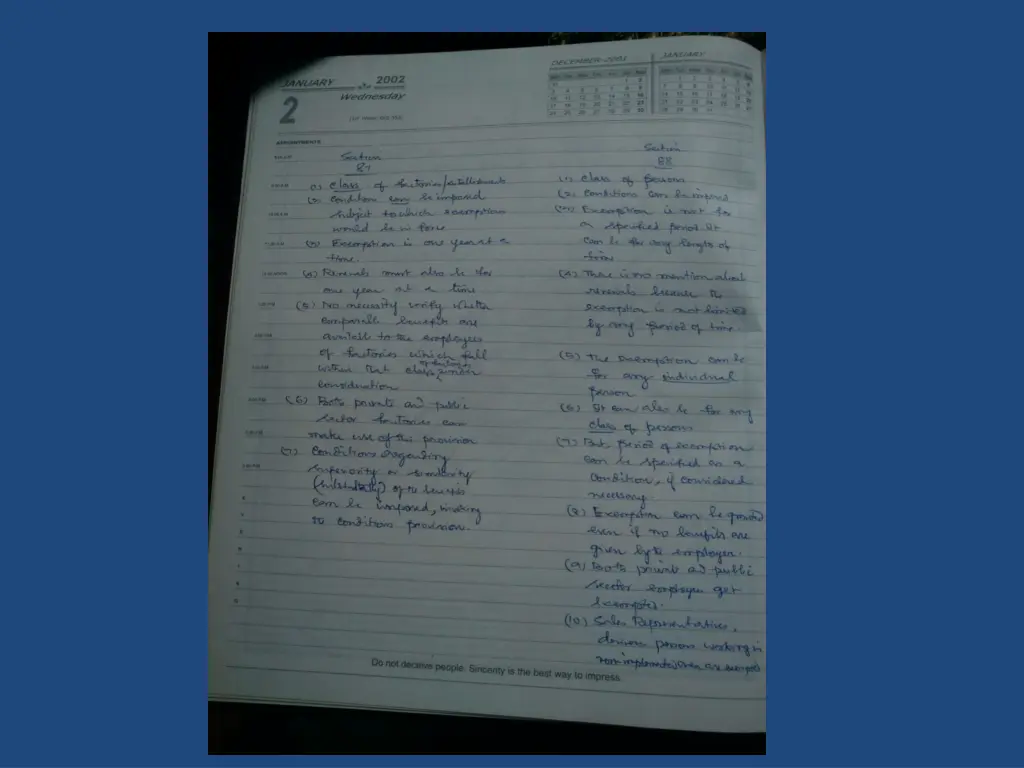 JANUARY 2002
2 Wednesday
DECEMBER-2001
JANUARY
APPOINTMENTS
Section
87
(1) Class of factories/establishments
(2) Condition can be imposed
subject to which exemption
would be in force
(3) Exemption is one year at a
time.
(4) Renewals must also be for
one year at a time
(5) No necessity verify whether
comparable benefits are
available to the employees
of factories which fall
within that class under
consideration
(6) Both private and public
sector factories can
make use of this provision
(7) Conditions regarding
superiority or similarity
of the benefits
can be imposed, invoking
to conditions provision.
Section
88
(1) Class of persons
(2) Conditions can be imposed
(3) Exemption is not for
a specified period. It
can be for any length of
time
(4) There is no mention about
renewals because the
exemption is not limited
by any period of time.
(5) The exemption can be
for any individual
person
(6) It can also be for any
class of persons
(7) But, period of exemption
can be specified as a
condition, if considered
necessary
(8) Exemption can be granted
even if no benefits are
given by the employer.
(9) Both private and public
sector employees get
exempted.
(10) Sales Representatives,
persons working in
non-implemented areas
Do not deceive people. Sincerity is the best way to impress.